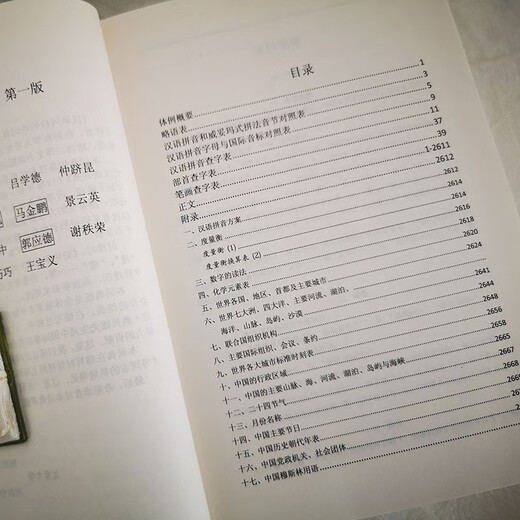 第一版
吕学德 仲跻昆
马金鹏 景云英
中 郭应德 谢秩荣
巧 王宝义
目录
体例概要 1
略语表 3
汉语拼音和威妥玛式拼法音节对照表 5
汉语拼音字母与国际音标对照表 9
汉语拼音查字表 11
部首查字表 37
笔画查字表 39
正文 1-2611
附录 2612
一、汉语拼音方案 2612
二、度量衡 2614
度量衡 (1) 2616
度量衡换算表 (2) 2618
三、数字的读法 2620
四、化学元素表 2624
五、世界各国、地区、首都及主要城市 2641
六、世界七大洲、四大洋、主要河流、湖泊、
海洋、山脉、岛屿、沙漠 2644
七、联合国组织机构 2648
八、主要国际组织、会议、条约 2656
九、世界各大城市标准时刻表 2658
十、中国的行政区域 2665
十一、中国的主要山脉、海、河流、湖泊、岛屿与海峡 2667
十二、二十四节气 2669
十三、月份名称
十四、中国主要节日
十五、中国历史朝代年表
十六、中国党政机关、社会团体
十七、中国穆斯林用语